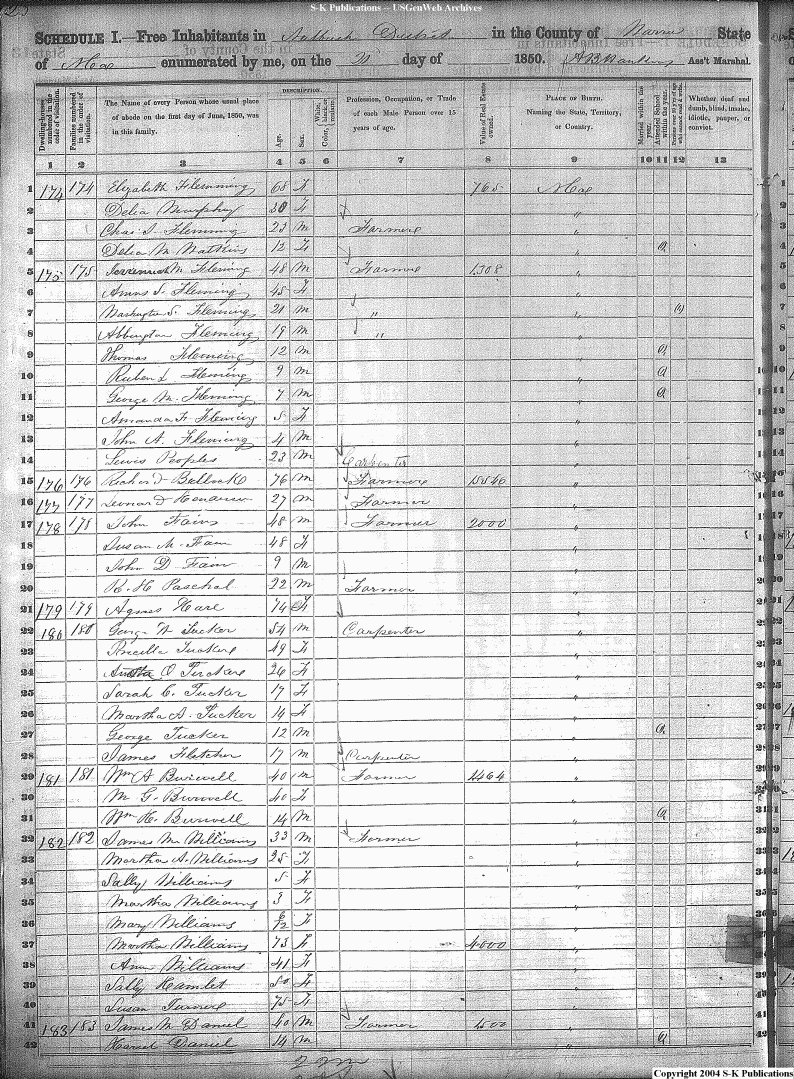 S-K Publications – USGenWeb Archives
SCHEDULE I.—Free Inhabitants in District in the County of State
of enumerated by me, on the day of 1850. Ass't Marshal.
Dwelling-houses numbered in the order of visitation.
Families numbered in the order of visitation.
The Name of every Person whose usual place of abode on the first day of June, 1850, was in this family.
DESCRIPTION.
Age.
Sex.
White, black, or mulatto.
Color,
Profession, Occupation, or Trade of each Male Person over 15 years of age.
Value of Real Estate owned.
PLACE OF BIRTH. Naming the State, Territory, or Country.
Married within the year.
Attended School within the year.
Whether deaf and dumb, blind, insane, idiotic, pauper, or convict.
1 2 3 4 5 6 7 8 9 10 11 12 13
1 174 174 Elizabeth Flemming 68 F 765
2 Delia Murphy 30 F "
3 Chas. Flemming 23 M Farmer "
4 Delia M. Watkins 12 F "
5 175 175 M Fleming 48 M Farmer 1308 "
6 S. Fleming 45 F "
7 Washington S. Fleming 21 M " "
8 Abbington Fleming 19 M " "
9 Thomas Fleming 12 M "
10 Ruben L Fleming 9 M "
11 George M. Fleming 7 M "
12 Amanda F. Fleming 5 F "
13 John A. Fleming 4 M "
14 Lewis Peoples 23 M Carpenter "
15 176 176 Richard Bullock 76 M Farmer 5540 "
16 177 177 Leonard 27 M Farmer "
17 178 178 John Fain 48 M Farmer 2000 "
18 Susan M. Fain 48 F "
19 John D Fain 9 M "
20 R. H Paschal 22 M Farmer "
21 179 179 Agnes Hare 74 F "
22 180 180 George Tucker 54 M Carpenter "
23 Tucker 49 F "
24 O Tucker 26 F "
25 Sarah C. Tucker 17 F "
26 Martha A. Tucker 14 F "
27 George Tucker 12 M "
28 James Fletcher 17 M Carpenter "
29 181 181 Wm A Burwell 40 M Farmer 4464 "
30 M G. Burwell 40 F "
31 Wm H. Burwell 14 M "
32 182 182 James M Williams 33 M Farmer "
33 Martha A. Williams 25 F "
34 Sally Williams 5 F "
35 Martha Williams 3 F "
36 Mary Williams 6/12 F "
37 Martha Williams 73 F 4000 "
38 Ann Williams 41 F "
39 Sally Hamlet 50 F "
40 Susan Turner 75 F "
41 183 183 James M Daniel 40 M Farmer 1500 "
42 Daniel 14 M "
Copyright 2004 S-K Publications